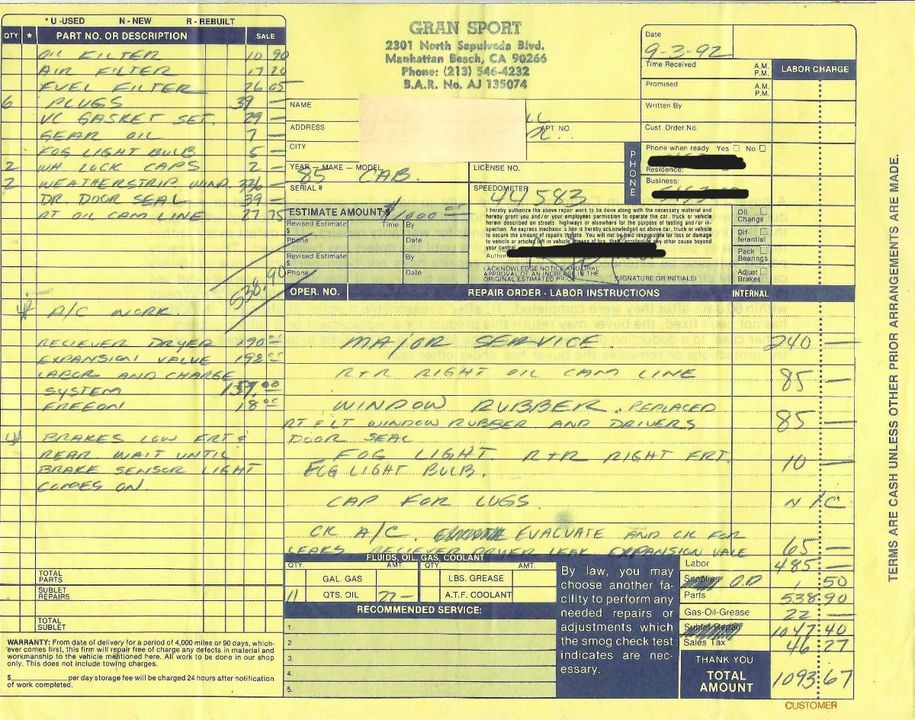 * U - USED N - NEW R - REBUILT
QTY * PART NO. OR DESCRIPTION SALE
OIL FILTER 10 90
AIR FILTER 17 20
FUEL FILTER 26.05
6 PLUGS 39 —
VC GASKET SET. 29 —
GEAR OIL 7 —
FOG LIGHT BULB 5 —
2 WH. LOCK CAPS 2 —
2 WEATHERSTRIP WIND. 336 —
DR DOOR SEAL 39 —
RT OIL CAM LINE 27 75
538.90
A/C WORK.
RECIEVER DRYER 190 00
EXPANSION VALUE 198 00
LABOR AND CHARGE
SYSTEM 137.00
FREEON 18 00
BRAKES LOW FRT &
REAR WAIT UNTIL
BRAKE SENSOR LIGHT
COMES ON.
TOTAL PARTS
SUBLET REPAIRS
TOTAL SUBLET
WARRANTY: From date of delivery for a period of 4,000 miles or 90 days, which-
ever comes first, this firm will repair free of charge any defects in material and
workmanship to the vehicle mentioned here. All work to be done in our shop
only. This does not include towing charges.
$ per day storage fee will be charged 24 hours after notification
of work completed.
GRAN SPORT
2301 North Sepulveda Blvd.
Manhattan Beach, CA 90266
Phone: (213) 546-4232
B.A.R. No. AJ 135074
NAME
ADDRESS APT NO.
CITY
YEAR — MAKE — MODEL LICENSE NO.
85 CAB.
SERIAL # SPEEDOMETER
44583
ESTIMATE AMOUNT $1000 00
Revised Estimate $ Time By
Phone Date
Revised Estimate $ By
Phone Date
I hereby authorize the above repair work to be done along with the necessary material and
hereby grant you and/or your employees permission to operate the car, truck or vehicle
herein described on streets, highways or elsewhere for the purpose of testing and/or in-
spection. An express mechanic's lien is hereby acknowledged on above car, truck or vehicle
to secure the amount of repairs thereto. You will not be held responsible for loss or damage
to vehicle or articles left in vehicle in case of fire, theft, accident or any other cause beyond
your control.
I ACKNOWLEDGE NOTICE AND ORAL
APPROVAL OF AN INCREASE IN THE
ORIGINAL ESTIMATED PRICE (SIGNATURE OR INITIALS)
Date
9-3-92
Time Received A.M. P.M.
Promised A.M. P.M.
Written By
Cust Order No.
LABOR CHARGE
PHONE
Phone when ready Yes No
Residence:
Business:
Oil Change
Differential
Pack Bearings
Adjust Brakes
OPER. NO. REPAIR ORDER - LABOR INSTRUCTIONS INTERNAL
MAJOR SERVICE. 240 —
R+R RIGHT OIL CAM LINE 85 —
WINDOW RUBBER. REPLACED
RT & LT WINDOW RUBBER AND DRIVERS 85 —
DOOR SEAL
FOG LIGHT R+R RIGHT FRT. 10 —
FOG LIGHT BULB.
CAP FOR LUGS N/C
CK A/C. EVACUATE AND CK FOR
LEAKS RECIEVER DRYER LEAK EXPANSION VALE 65 —
FLUIDS, OIL, GAS, COOLANT
QTY. AMT. QTY. AMT.
GAL. GAS LBS. GREASE
11 QTS. OIL 22 — A.T.F. COOLANT
RECOMMENDED SERVICE:
1.
2.
3.
4.
5.
By law, you may
choose another fa-
cility to perform any
needed repairs or
adjustments which
the smog check test
indicates are nec-
essary.
Labor 485 —
Supplies O.D 1 50
Parts 538 90
Gas-Oil-Grease 22 —
Sublet Repair 1047 40
Sales Tax 46 27
THANK YOU
TOTAL AMOUNT 1093 67
CUSTOMER
TERMS ARE CASH UNLESS OTHER PRIOR ARRANGEMENTS ARE MADE.